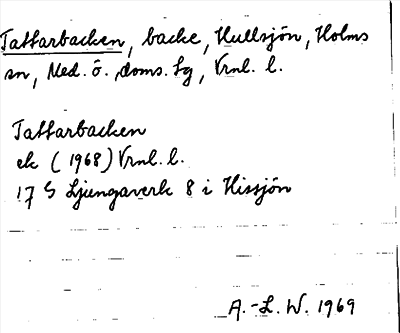 Tattarbacken, backe, Hullsjön, Holms
sn, Med. ö. doms. sg, Vrnl. l.
Tattarbacken
ek (1968) Vrnl. l.
17 G Ljungaverk 8 i Hissjön
A.-L. W. 1969